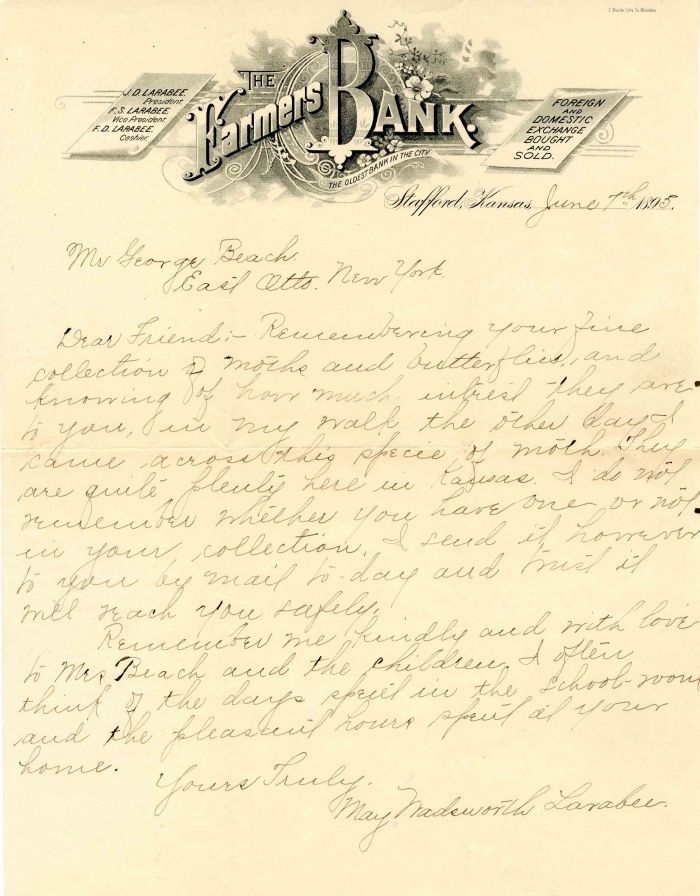 J.D. LARABEE,
President.
F.S. LARABEE,
Vice President.
F.D. LARABEE,
Cashier.
THE
Farmers BANK.
THE OLDEST BANK IN THE CITY.
FOREIGN
AND
DOMESTIC
EXCHANGE
BOUGHT
AND
SOLD.
Stafford, Kansas, June 7th 1895.
Mr George Beach.
East Otto. New York.
Dear Friend;- Remembering your fine
collection of moths and butterflies, and
knowing of how much intrest they are
to you, in my walk the other day I
came across this specie of moth. They
are quite plenty here in Kansas. I do not
remember whether you have one or not
in your collection. I send it however
to you by mail to-day and trust it
will reach you safely.
Remember me kindly and with love
to Mrs Beach and the children. I often
think of the days spent in the School-room
and the pleasant hours spent at your
home.
Yours Truly.
May Wadsworth Larabee.